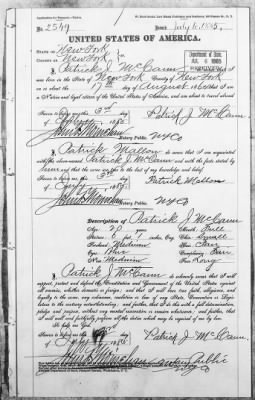 No. 2549
July 6, 1885.
UNITED STATES OF AMERICA.
STATE OF New York
COUNTY OF New York
I, Patrick J McCann
was born in the State of New York County of New York
on or about the 17th day of August
a Native and loyal citizen of the United States of America, and am about to travel abroad
Sworn to before me, this 3rd day
of July, 1885 Patrick J McCann
Notary Public. NYCo
I, Patrick Mallon do solemnly swear that I am acquainted
with the above-named Patrick J McCann and with the facts stated by
him, and that the same are true to the best of my knowledge and belief.
Sworn to before me, this 3rd day
of July 1885 Patrick Mallon
Notary Public. NYCo
Description of Patrick J McCann
Age: 20 years
Mouth: Full
Stature: 5 feet
inches, Eng.
Chin: Small
Forehead: Medium
Hair: Fair
Eyes:
Complexion: Fair
Nose: Medium
Face:
I, Patrick J McCann do solemnly swear that I will
support, protect and defend the Constitution and Government of the United States against
all enemies, whether domestic or foreign; and that I will bear true faith, allegiance, and
loyalty to the same, any ordinance, resolution or law of any State, Convention or Legis-
lature to the contrary notwithstanding; and further, that I do this with a full determination,
pledge and purpose, without any mental reservation or evasion whatsoever; and further, that
I will well and faithfully perform all the duties which may be required of me by law.
So help me God.
Sworn to before me, this day
of July 1885 Patrick J McCann
Notary Public
NY Co